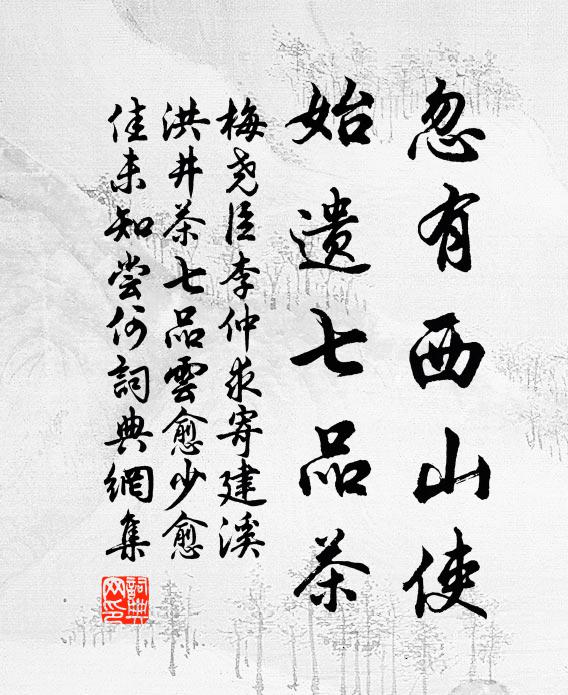 忽有西山使
始遗七品茶
梅尧臣李仲求寄建溪
洪井茶七品雲愈少愈
佳未知尝何詞典網集
詞典网印